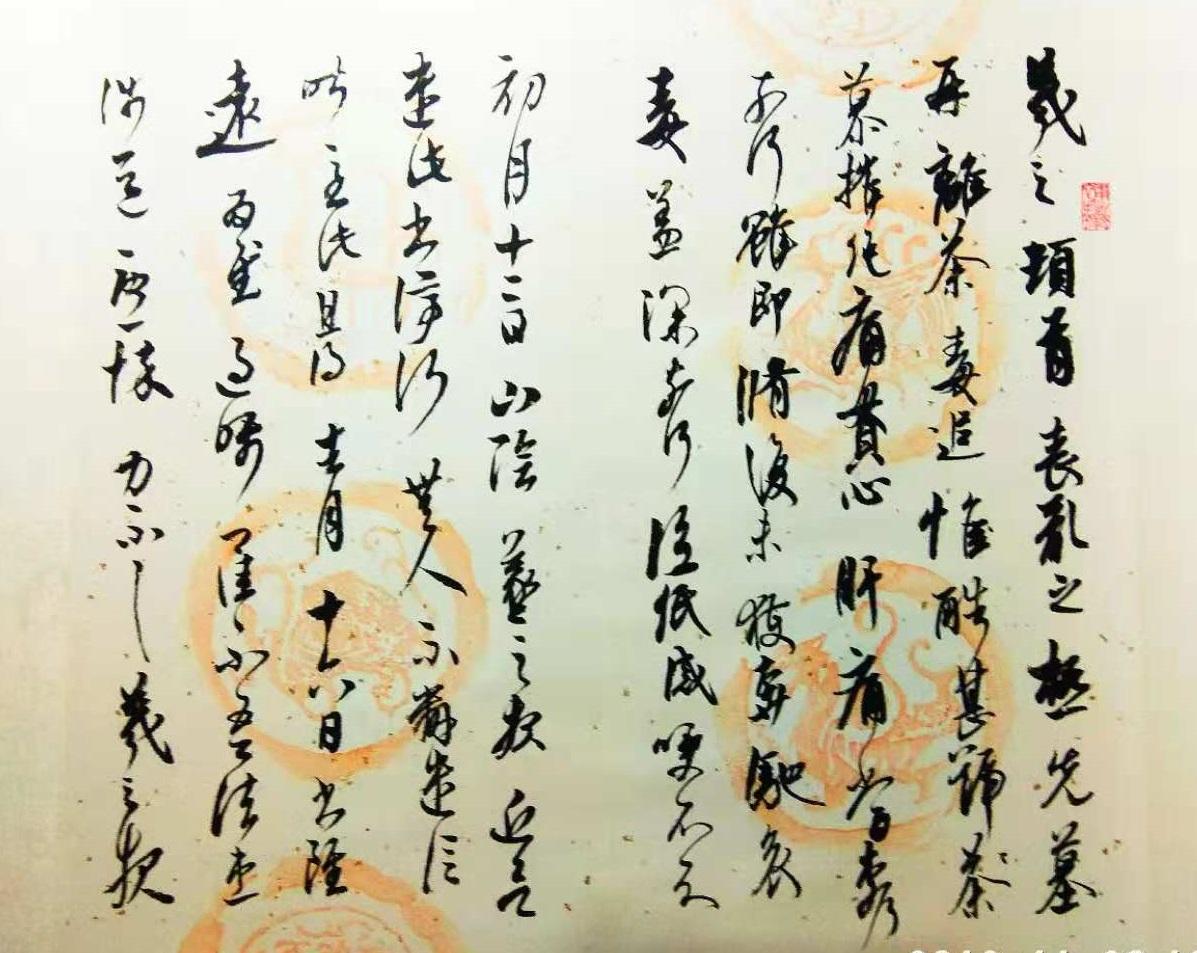 羲之頓首喪亂之極先墓
再離荼毒追惟酷甚號荼
慕摧絕痛貫心肝痛當奈何
奈何雖即脩復未獲奔馳哀
毒益深奈何臨紙感哽不知
初月十二日山陰羲之報近欲
遣此書停行無人不辦遣信
昨至此且得去月十六日書雖
遠為慰過囑卿佳不吾諸患
涉道憂悴力不具羲之報